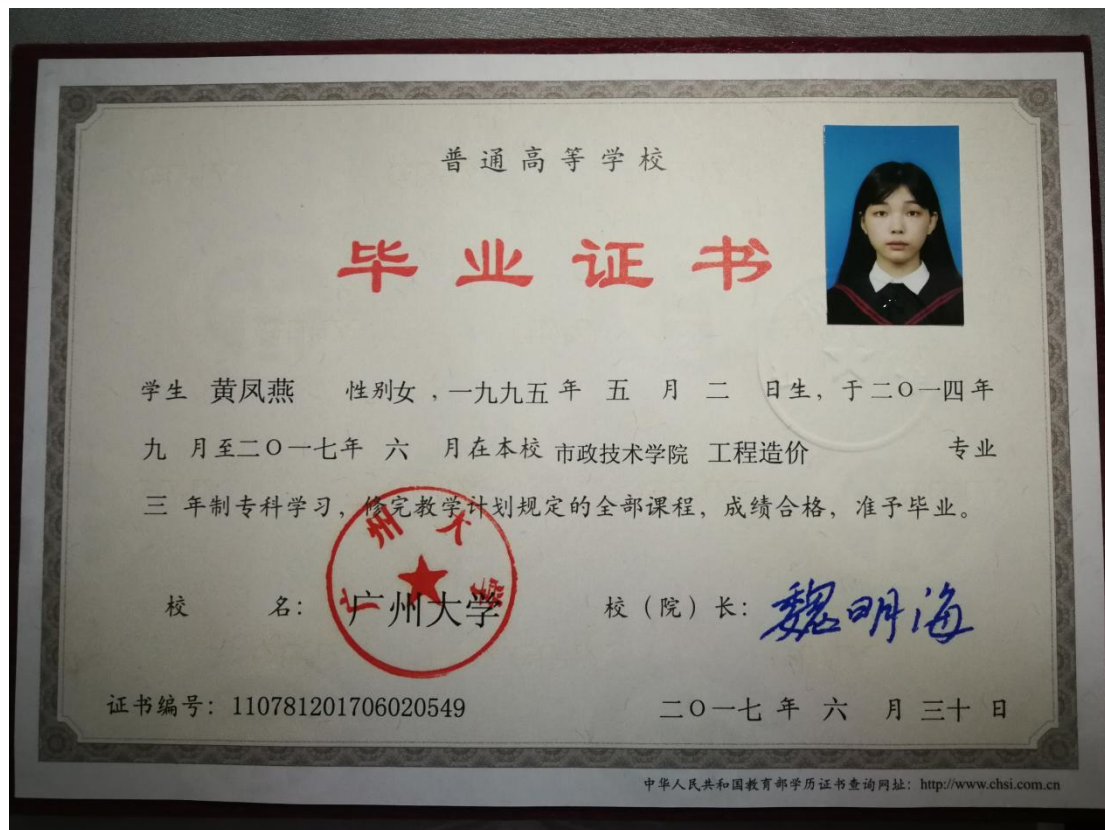 普通高等学校
毕业证书
学生 黄凤燕 性别女，一九九五年 五 月 二 日生，于二○一四年
九 月至二○一七年 六 月在本校 市政技术学院 工程造价 专业
三 年制专科学习，修完教学计划规定的全部课程，成绩合格，准予毕业。
广州大学
校 名： 广州大学 校（院）长： 魏明海
证书编号：110781201706020549 二○一七 年 六 月 三十 日
中华人民共和国教育部学历证书查询网址：http://www.chsi.com.cn